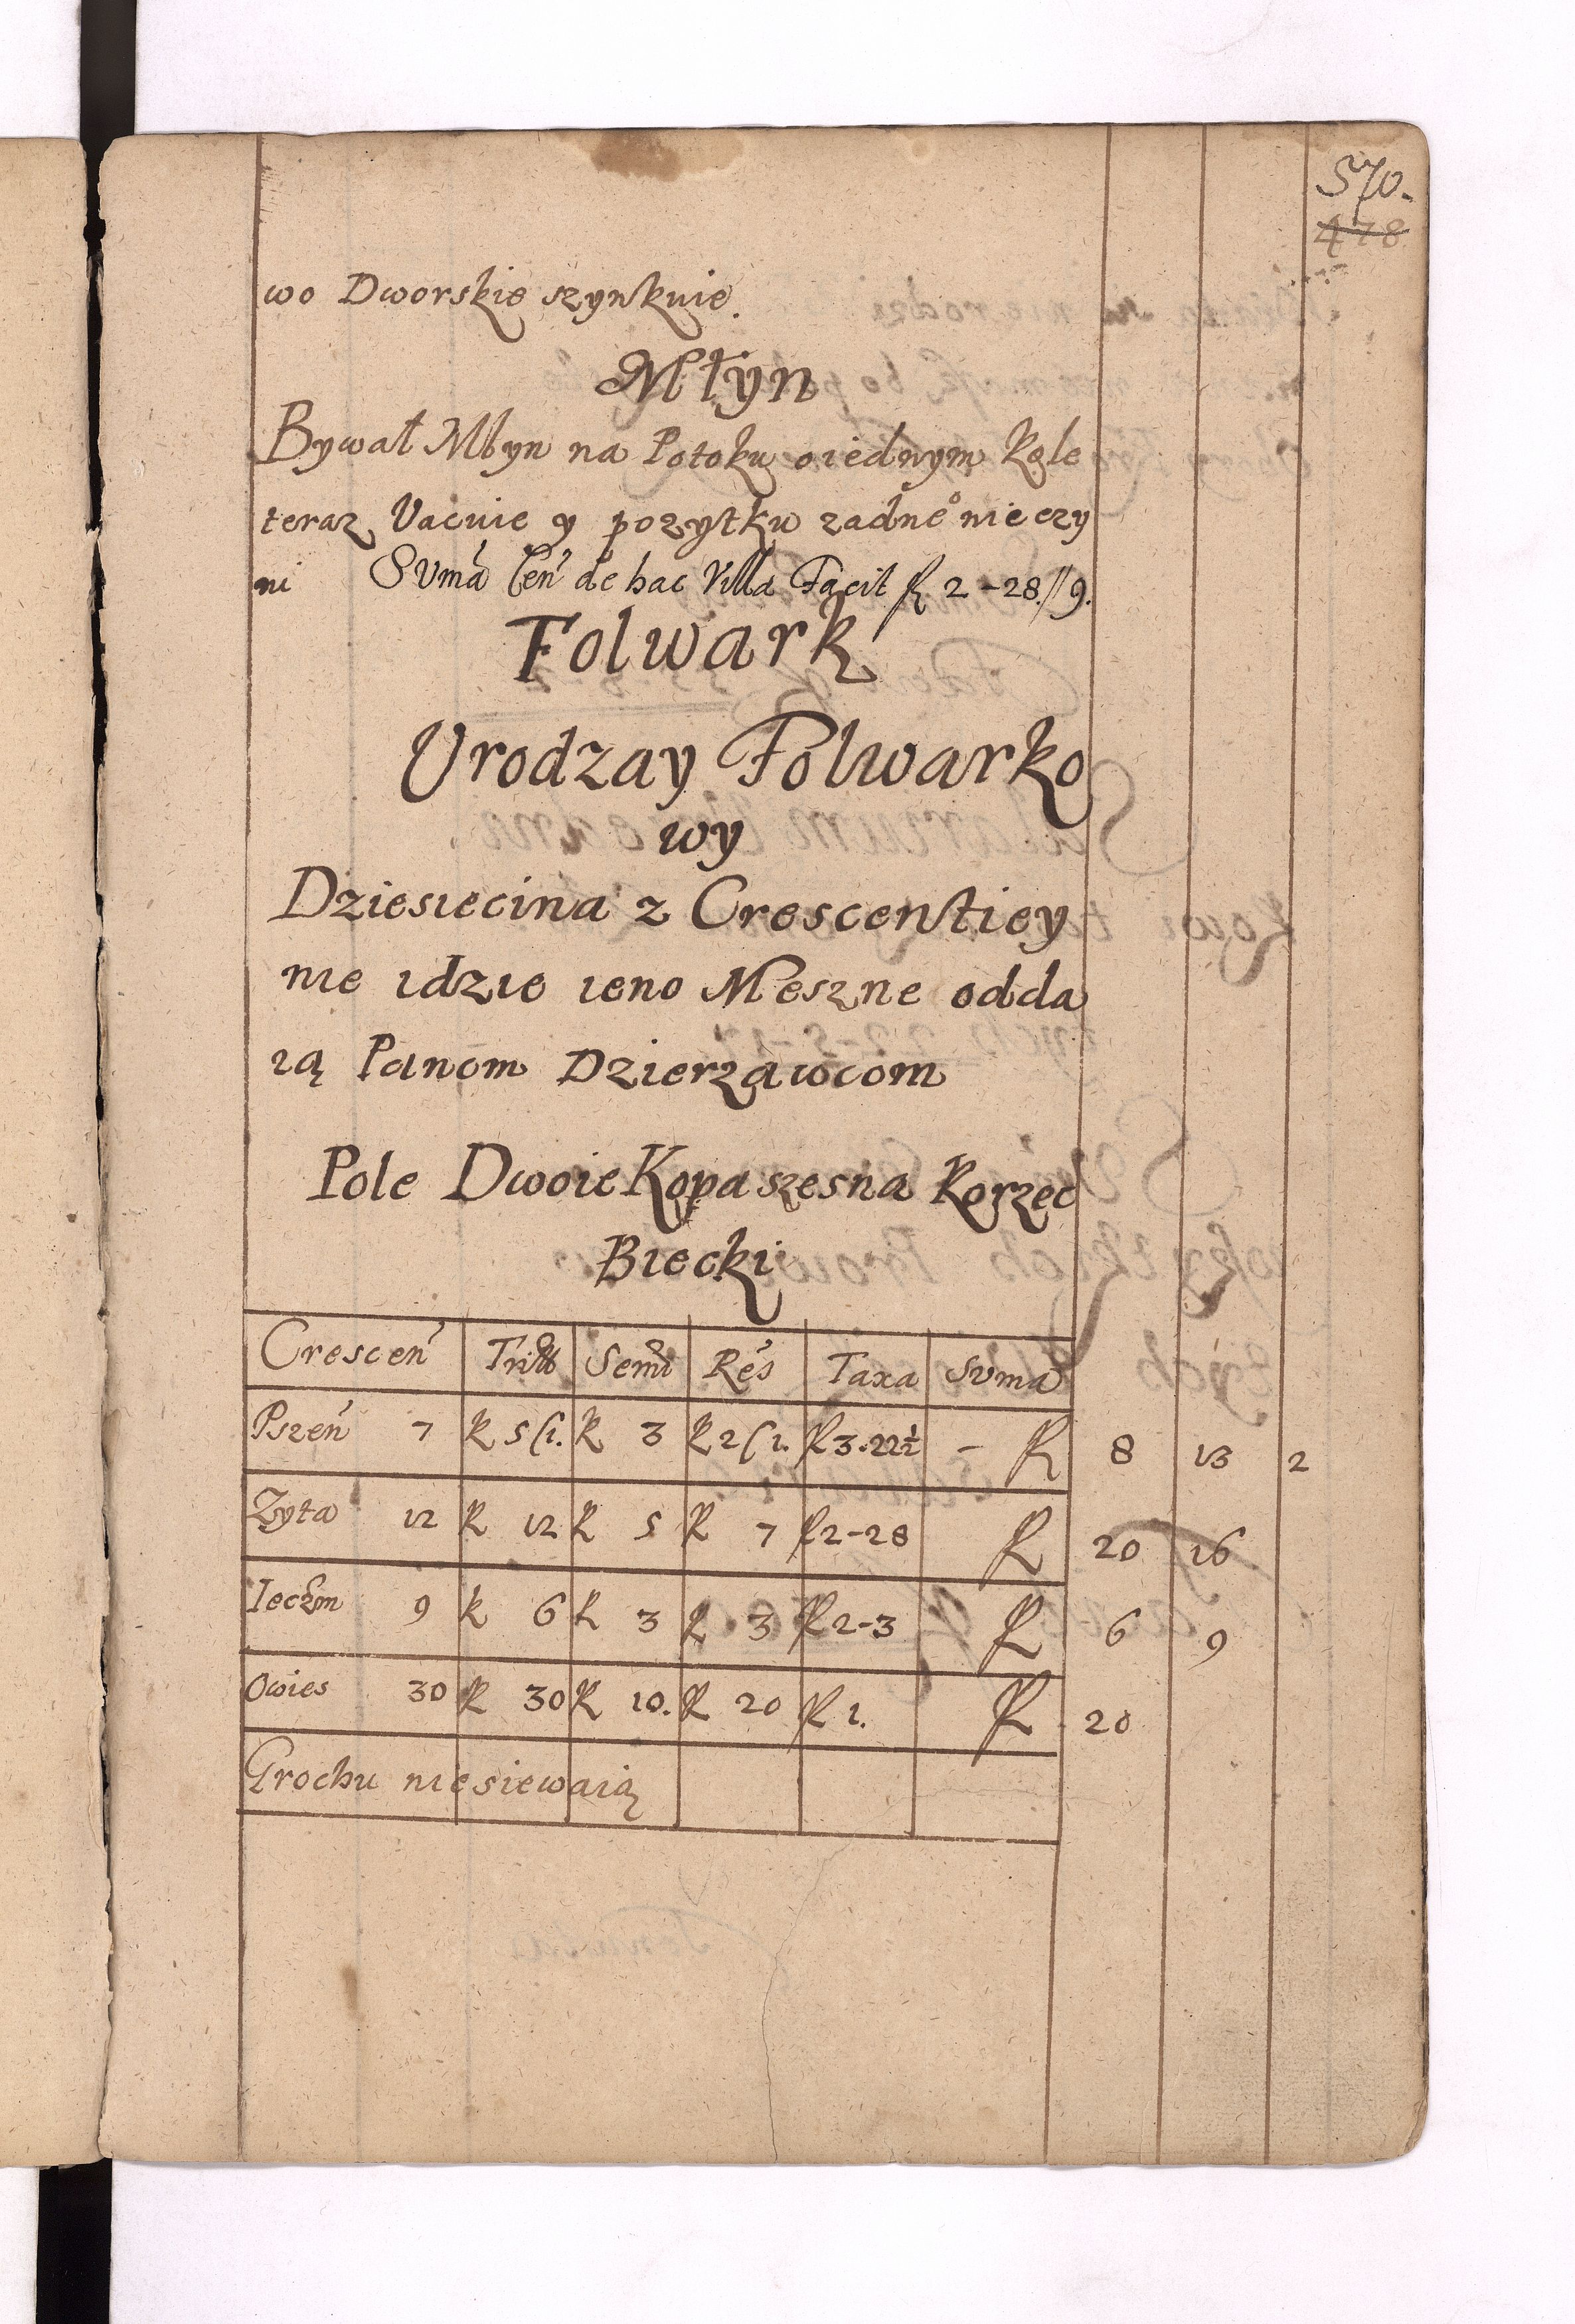 570.
478
wo Dworskie szynkuie.
Młyn
Bywał Młyn na Potoku o iednym Kole
teraz Vacuie y pozytku zadne° nie czy
ni Suma Cen de hac Villa Facit fl 2-28.//9.
Folwark
Urodzay Folwarko
wy
Dziesiecina z Crescentiey
nie idzie ieno Meszne odda
ią Panom Dzierzawcom
Pole Dwoie Kopaszesna Korzec
Biecki
Crescen Tritt Semi Res Taxa Suma
Pszen 7 K 5 (1. K 3 K 2 (1. fl 3.22½ - fl 8 13 2
Zyta 12 K 12 K 5 K 7 fl 2-28 fl 20 16
Ieczm 9 K 6 K 3 K 3 fl 2-3 fl 6 9
Owies 30 K 30 K 10. K 20 fl 1. fl 20
Grochu nie siewaią